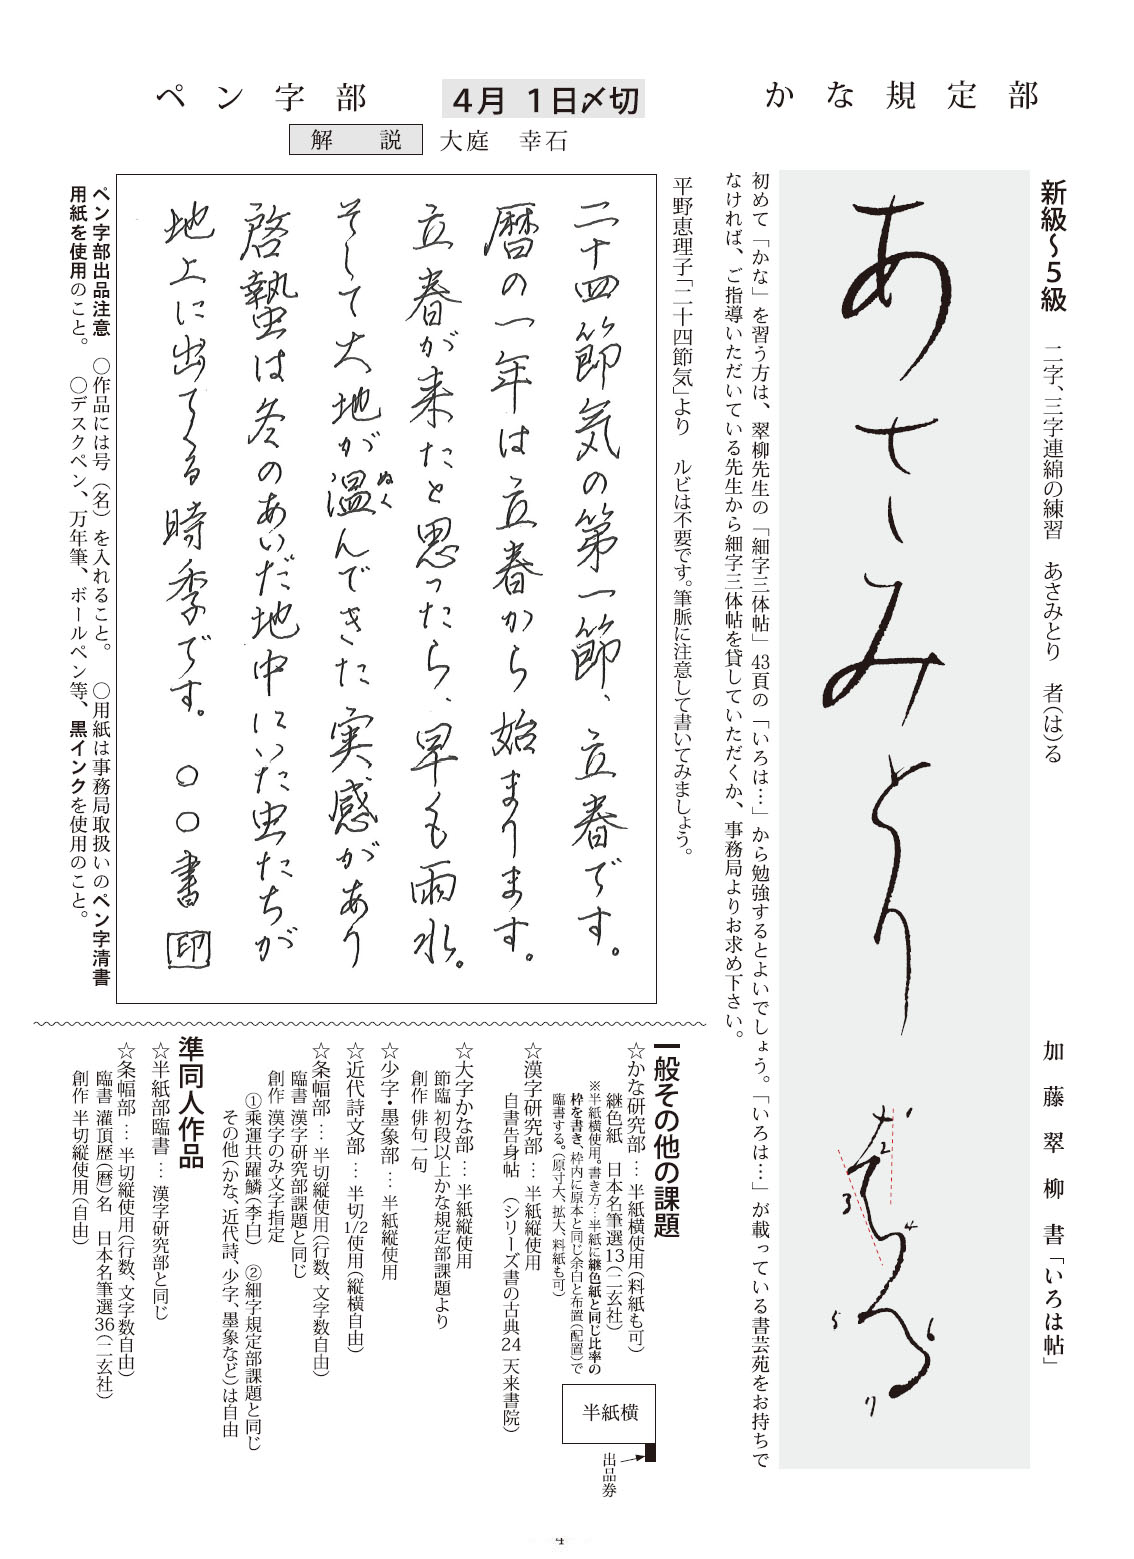 かな規定部
新級～５級　二字、三字連綿の練習　あさみとり　者(は)る
加藤翠柳書「いろは帖」
あさみとり
者る
1
2
3
4
5
6
7
初めて「かな」を習う方は、翠柳先生の「細字三体帖」43頁の「いろは…」から勉強するとよいでしょう。「いろは…」が載っている書芸苑をお持ちで
なければ、ご指導いただいている先生から細字三体帖を貸していただくか、事務局よりお求め下さい。
４月１日〆切
ペン字部
解　説　大庭　幸石
平野恵理子「二十四節気」より　ルビは不要です。筆脈に注意して書いてみましょう。
二十四節気の第一節、立春です。
暦の一年は立春から始まります。
立春が来たと思ったら、早も雨水。
そして大地が温んできた実感があり
ぬく
啓蟄は冬のあいだ地中にいた虫たちが
地上に出てくる時季です。○○書 印
ペン字部出品注意　○作品には号（名）を入れること。　○用紙は事務局取扱いのペン字清書
用紙を使用のこと。　○デスクペン、万年筆、ボールペン等、黒インクを使用のこと。
一般その他の課題
☆かな研究部…半紙横使用(料紙も可)
継色紙　日本名筆選13(二玄社)
※半紙横使用。書き方…半紙に継色紙と同じ比率の
枠を書き、枠内に原本と同じ余白と布置(配置)で
臨書する。(原寸大、拡大、料紙も可)
半紙横
出品券
☆漢字研究部…半紙縦使用
自書告身帖　(シリーズ書の古典24 天来書院)
☆大字かな部…半紙縦使用
節臨 初段以上かな規定部課題より
創作 俳句一句
☆少字・墨象部…半紙縦使用
☆近代詩文部…半切1/2使用(縦横自由)
☆条幅部…半切縦使用(行数、文字数自由)
臨書 漢字研究部課題と同じ
創作 漢字のみ文字指定
①乗運共躍鱗(李白)　②細字規定部課題と同じ
その他(かな、近代詩、少字、墨象など)は自由
準同人作品
☆半紙部臨書…漢字研究部と同じ
☆条幅部…半切縦使用(行数、文字数自由)
臨書 灌頂歴(暦)名　日本名筆選36(二玄社)
創作 半切縦使用(自由)
4